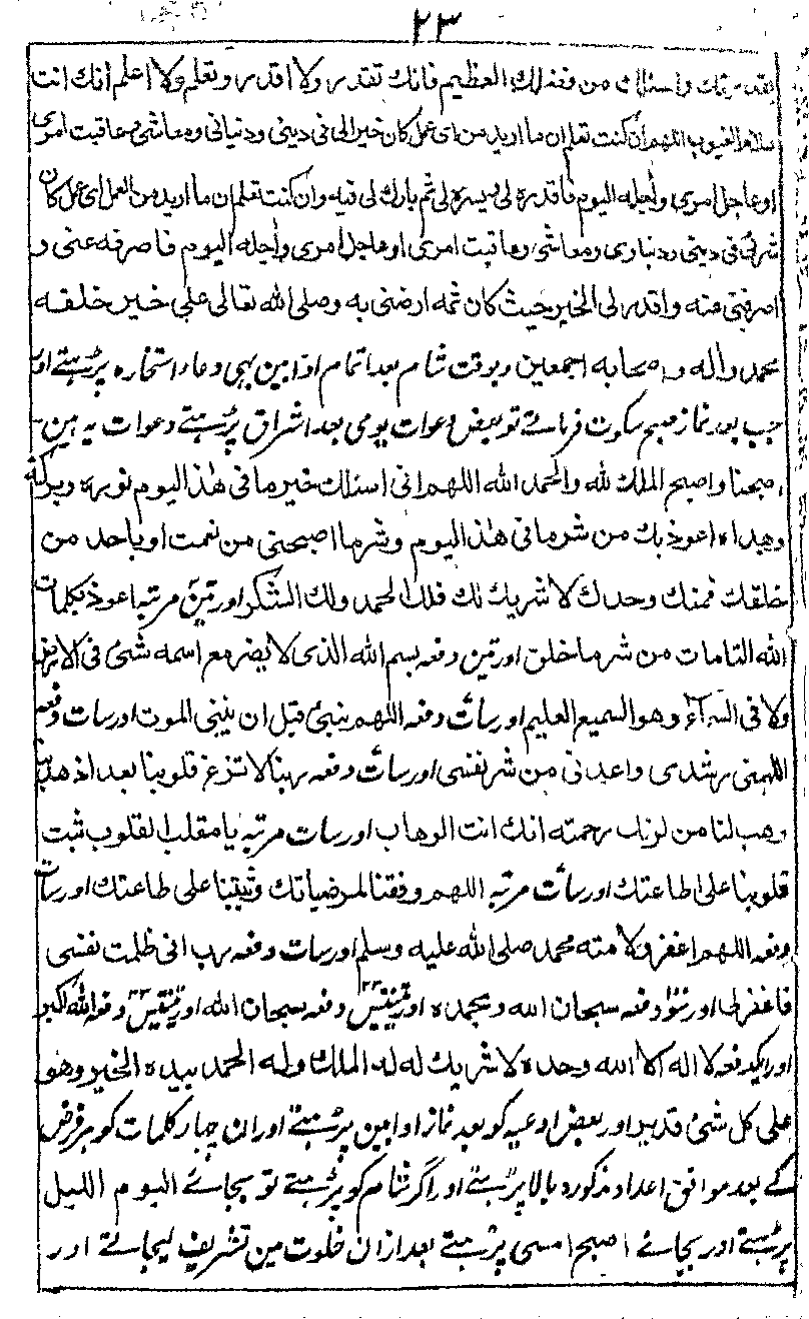 ٢٣
بقدرتك واسئلك من فضلك العظيم فانك تقدر ولا اقدر وتعلم ولا اعلم انك انت
علام الغيوب اللهم ان كنت تعلم ان ما اريد من اى عمل كان خير الى فى دينى ودنيائى ومعاشى وعاقبت امرى
او عاجل امرى واٰجله اليوم فاقدره لى ويسره لى ثم بارك لى فيه وان كنت تعلم ان ما اريد من العمل اى عمل كان
شر لى فى دينى ودنياوى ومعاشى وعاقبت امرى او عاجل امرى واٰجله اليوم فاصرفه عنى و
اصرفنى عنه واقدر لى الخير حيث كان ثمه ارضنى به وصلى الله تعالى على خير خلقه
محمد واله واصحابه اجمعين وبوقت شام بعد اتمام اوابين یہی دعاء استخارہ پڑہتے اور
جب بعد نماز صبح سکوت فرماتے تو بعض دعوات یومی بعد اشراق پڑہتے دعوات یہ ہین
اصبحنا واصبح الملك لله والحمد الله اللهم انى اسئلك خير ما فى هٰذا اليوم نوره وبركته
وهداه اعوذ بك من شر ما فى هٰذا اليوم وشر ما اصبحنى من نعمت او باحد من
خلقك فمنك وحدك لا شريك لك فلك الحمد ولك الشكر اور تین مرتبہ اعوذ بكلمات
الله التامات من شر ما خلق اور تین دفعہ بسم الله الذى لا يضر مع اسمه شئ فى الارض
ولا فى السماء وهو السميع العليم اور سات دفعہ اللهم نبئ قبل ان ينبنى الموت اور سات دفعہ
اللهمنى رشدى واعدنى من شر نفسى اور سات دفعہ ربنا لا تزغ قلوبنا بعد اذ هديتنا
وهب لنا من لدنك رحمته انك انت الوهاب اور سات مرتبہ يا مقلب القلوب ثبت
قلوبنا على طاعتك اور سات مرتبہ اللهم وفقنا لمرضياتك وثبتنا على طاعتك اور سات
دفعہ اللهم اغفر ولامته محمد صلى الله عليه وسلم اور سات دفعہ رب انى ظلمت نفسى
فاغفر لى اور سو دفعہ سبحان الله وبحمده اور تینتیس ٣٣ دفعہ سبحان الله اور تینتیس ٣٣ دفعہ الله اكبر
اور ایکدفعہ لا اله الا الله وحده لا شريك له له الملك وله الحمد بيده الخير وهو
على كل شئ قدير اور بعض ادعیہ کو بعد نماز اوابین پڑہتے اور ان چہار کلمات کو ہر فرض
کے بعد موافق اعداد مذکورہ بالا پڑہتے اور اگر شام کو پڑہتے تو بجائے اليوم الليل
پڑہتے اور بجائے اصبح امسى پڑہتے بعد ازان خلوت مین تشریف لیجاتے اور